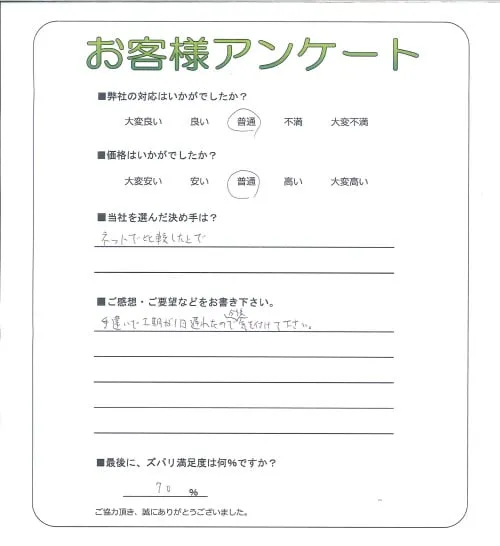 お客様アンケート
■弊社の対応はいかがでしたか？
大変良い 良い 普通 不満 大変不満
■価格はいかがでしたか？
大変安い 安い 普通 高い 大変高い
■当社を選んだ決め手は？
ネットで比較した上で
■ご感想・ご要望などをお書き下さい。
今後
手違いで工期が1日遅れたので気を付けて下さい。
■最後に、ズバリ満足度は何％ですか？
70 ％
ご協力頂き、誠にありがとうございました。